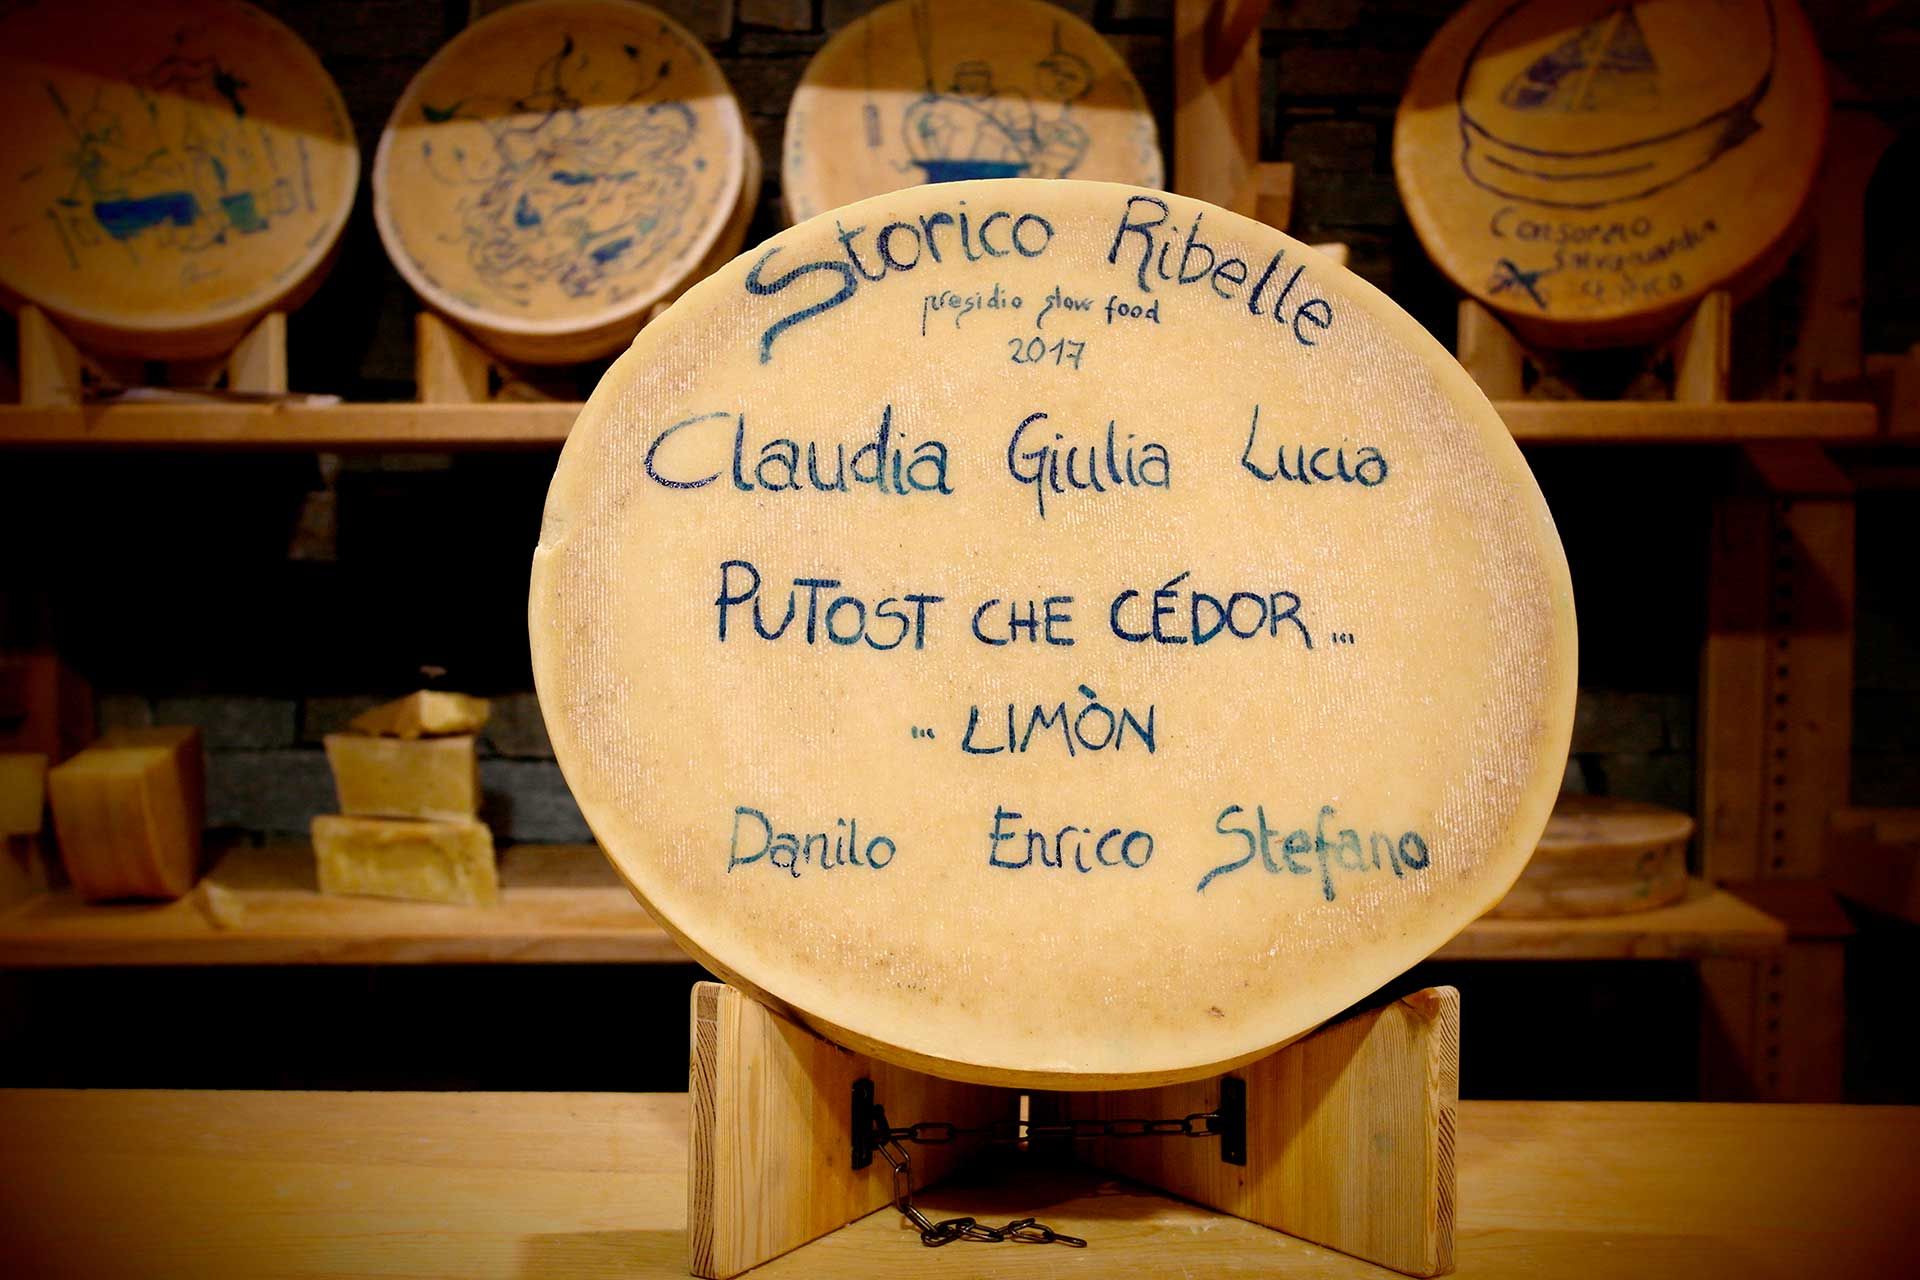 Storico Ribelle
presidio slow food
2017
Claudia Giulia Lucia
PUTOST CHE CÉDOR...
... LIMÒN
Danilo Enrico Stefano
Consorzio
Salvaguardia